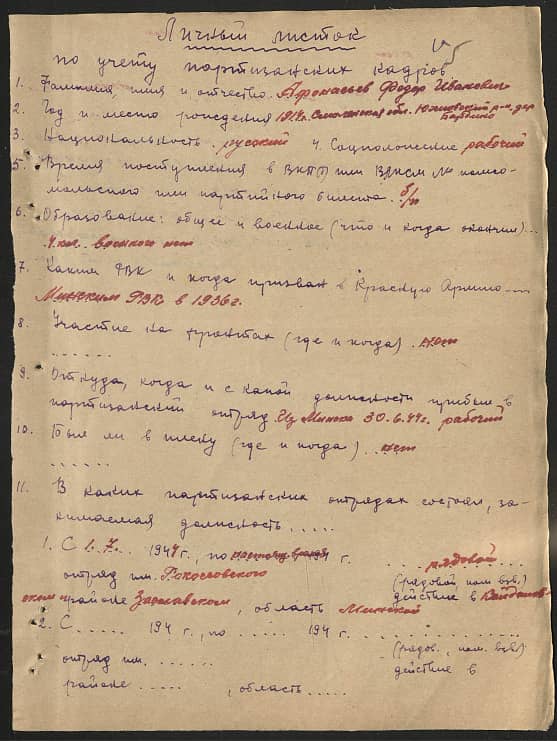 Личный листок
по учету партизанских кадров
1. Фамилия, имя и отчество. Афонасьев Федор Иванович
2. Год и место рождения 1914 г. Смоленская обл. р-н, дер.
3. Национальность. русский 4. Соцположение рабочий
5. Время поступления в ВКПб или ВЛКСМ № комсо-
мольского или партийного билета. б/п
6. Образование: общее и военное (что и когда окончил)...
4 кл. военного нет
7. Каким РВК и когда призван в Красную Армию....
Минским РВК в 1936 г.
8. Участие на фронтах (где и когда). нет
......
9. Откуда, когда и с какой должности прибыл в
партизанский отряд Из Минска 30.6.44г. рабочий
10. Был ли в плену (где и когда)... нет
......
11. В каких партизанских отрядах состоял, за-
нимаемая должность.....
1. С 1.7.. 1944 г., по настоящ. время г. .. рядовой...
отряд им. Рокоссовского (рядовой, ком. взв.)
действие в
районе Заславском, область Минской
2. С ..... 194 г., по ..... 194 г. .........
отряд им. ...... (рядов., ком. взв.)
действие в
районе ....., область.....